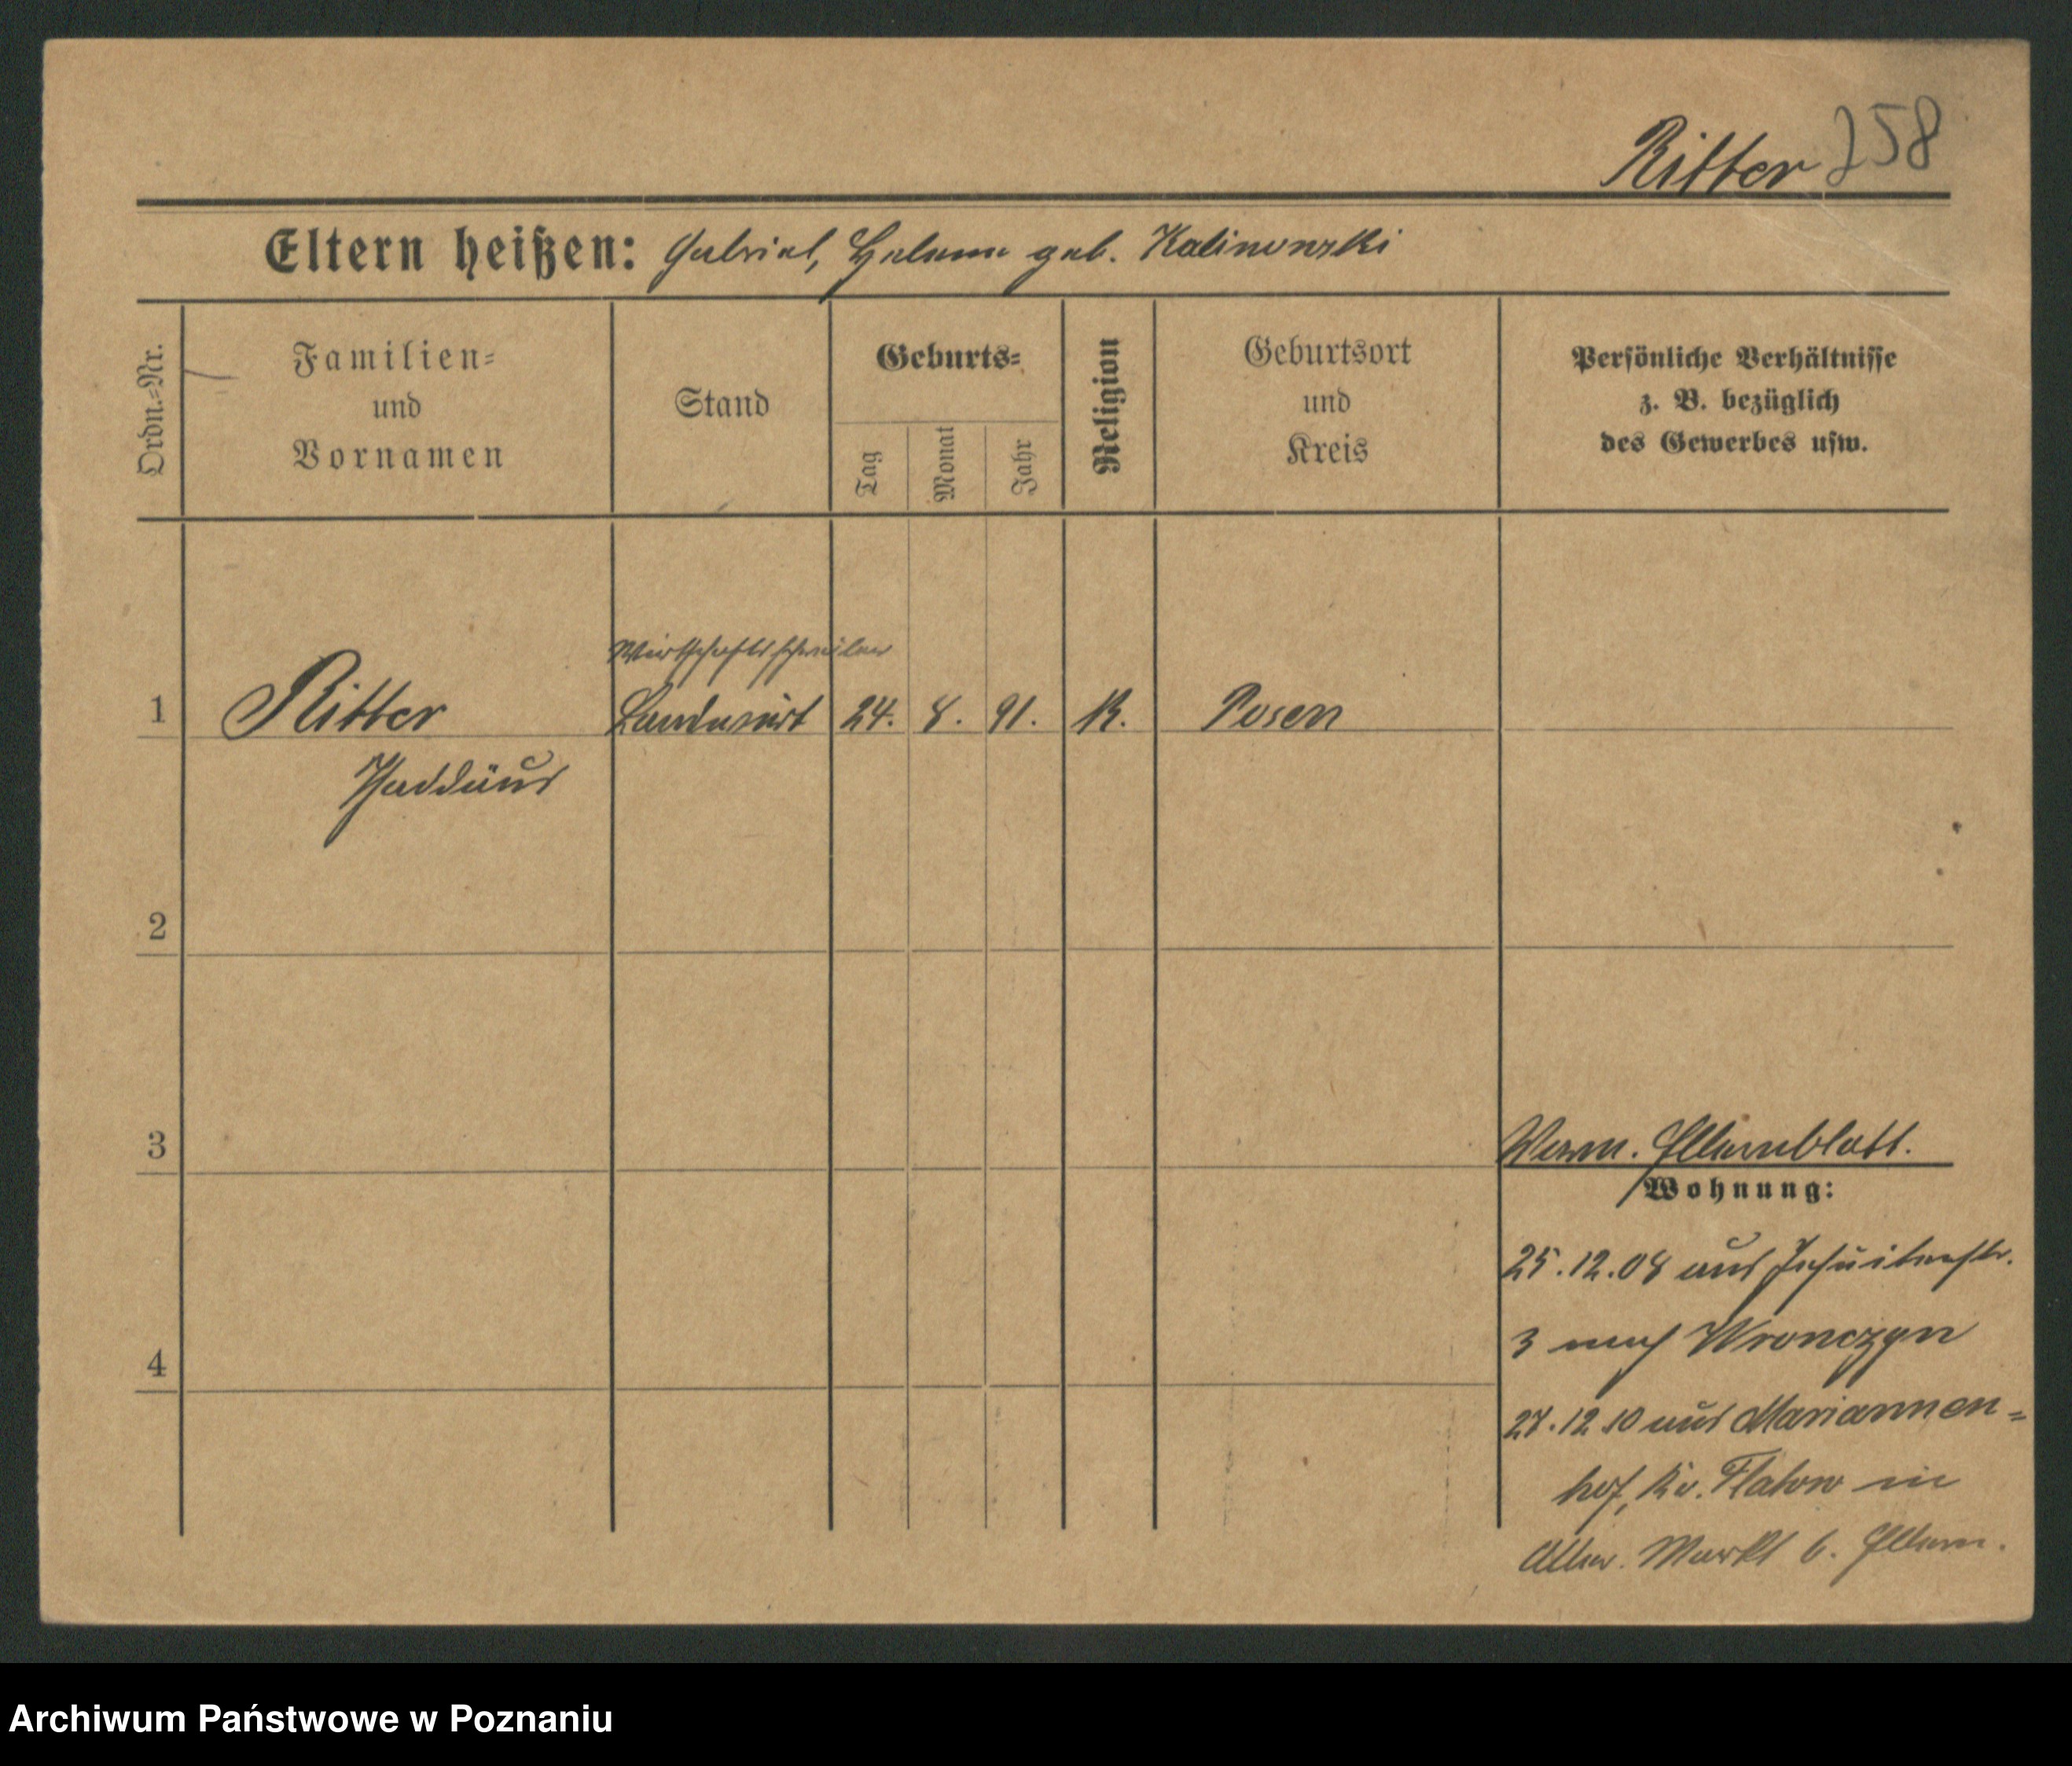 Ritter 258
Eltern heißen: Gabriel, Helene geb. Kalinowski
Ordn.-Nr.
Familien-
und
Vornamen
Stand
Geburts-
Tag
Monat
Jahr
Religion
Geburtsort
und
Kreis
Persönliche Verhältnisse
z. B. bezüglich
des Gewerbes usw.
Wirtschaftsschreiber
1 Ritter Landwirt 24. 8. 91. K. Posen
Thaddäus
2
3
Verm. Elternblatt.
Wohnung:
25.12.08 aus Jesuitenstr.
3 nach Wronczyn
4
27.12.10 aus Mariannen-
hof, Kr. Flatow in
Alter. Markt 6. Eltern.
Archiwum Państwowe w Poznaniu